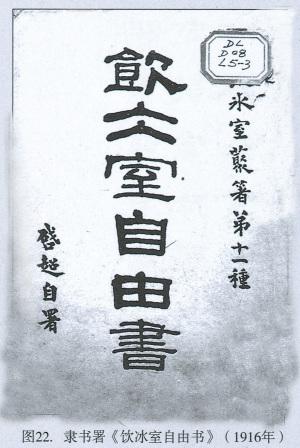 DL
D08
L5-3
冰室叢著第十一種
飲冰室自由書
啓超自署
图22. 隶书署《饮冰室自由书》（1916年）